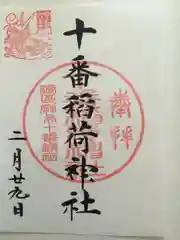 奉拝
十番稲荷神社
二月廿九日